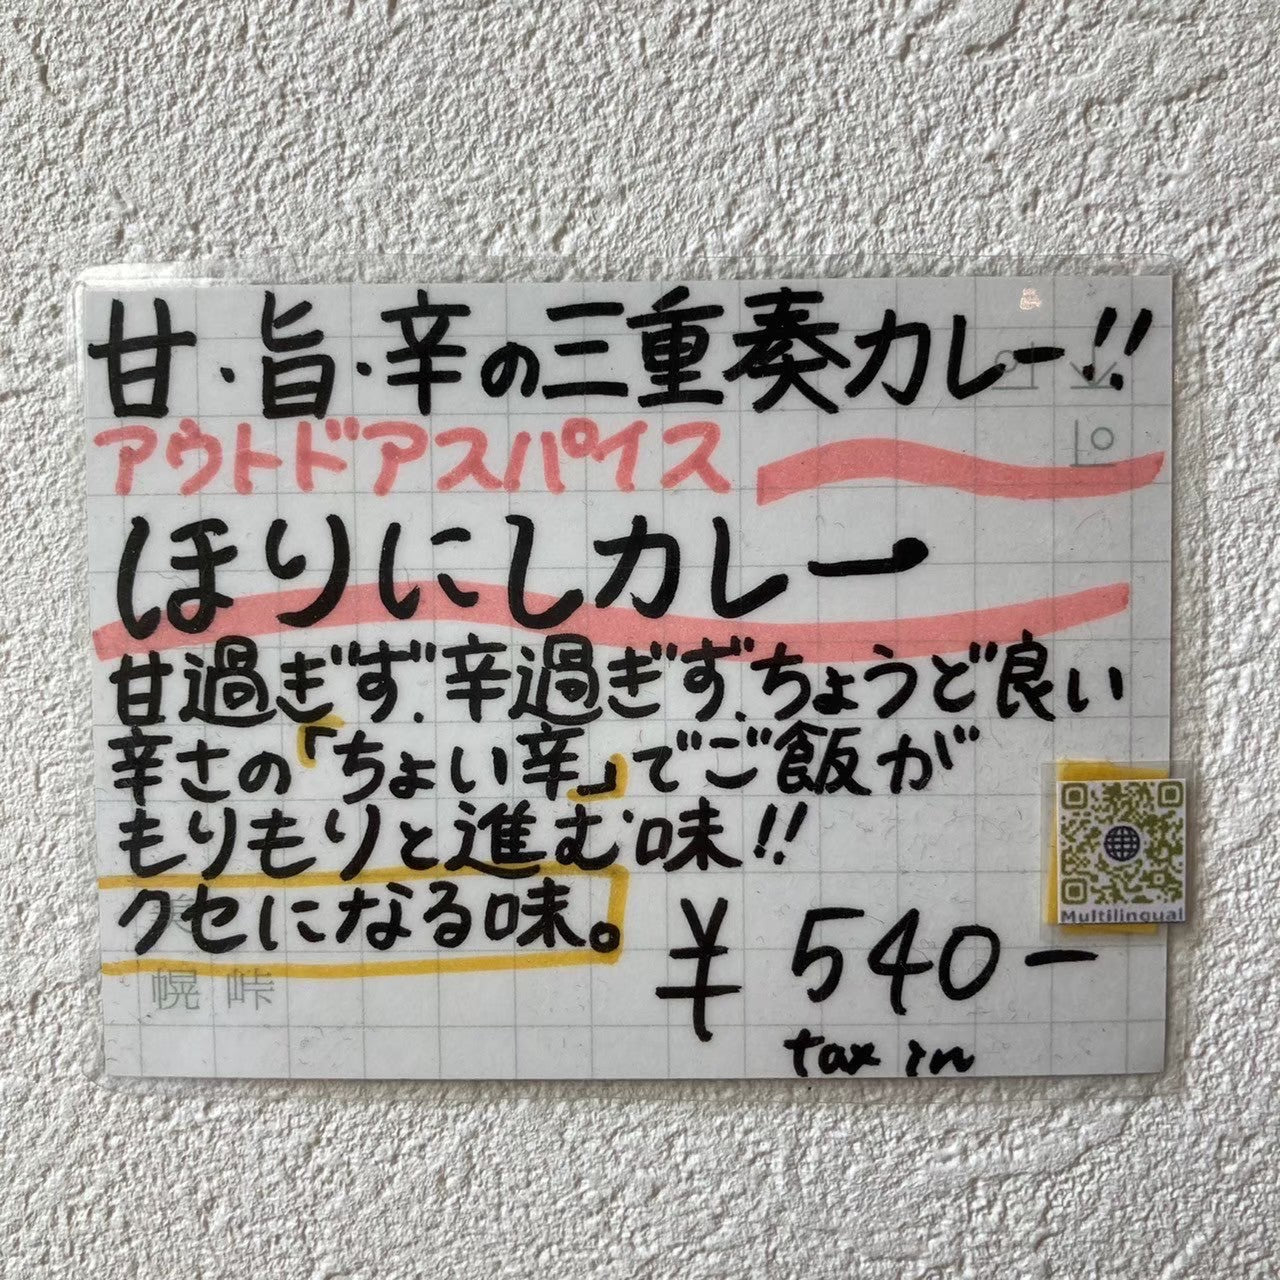 甘・旨・辛の三重奏カレー!!
アウトドアスパイス
ほりにしカレー
甘過ぎず、辛過ぎず、ちょうど良い
辛さの「ちょい辛」でご飯が
もりもりと進む味!!
クセになる味。
¥540ー
tax in
Multilingual
幌 峠